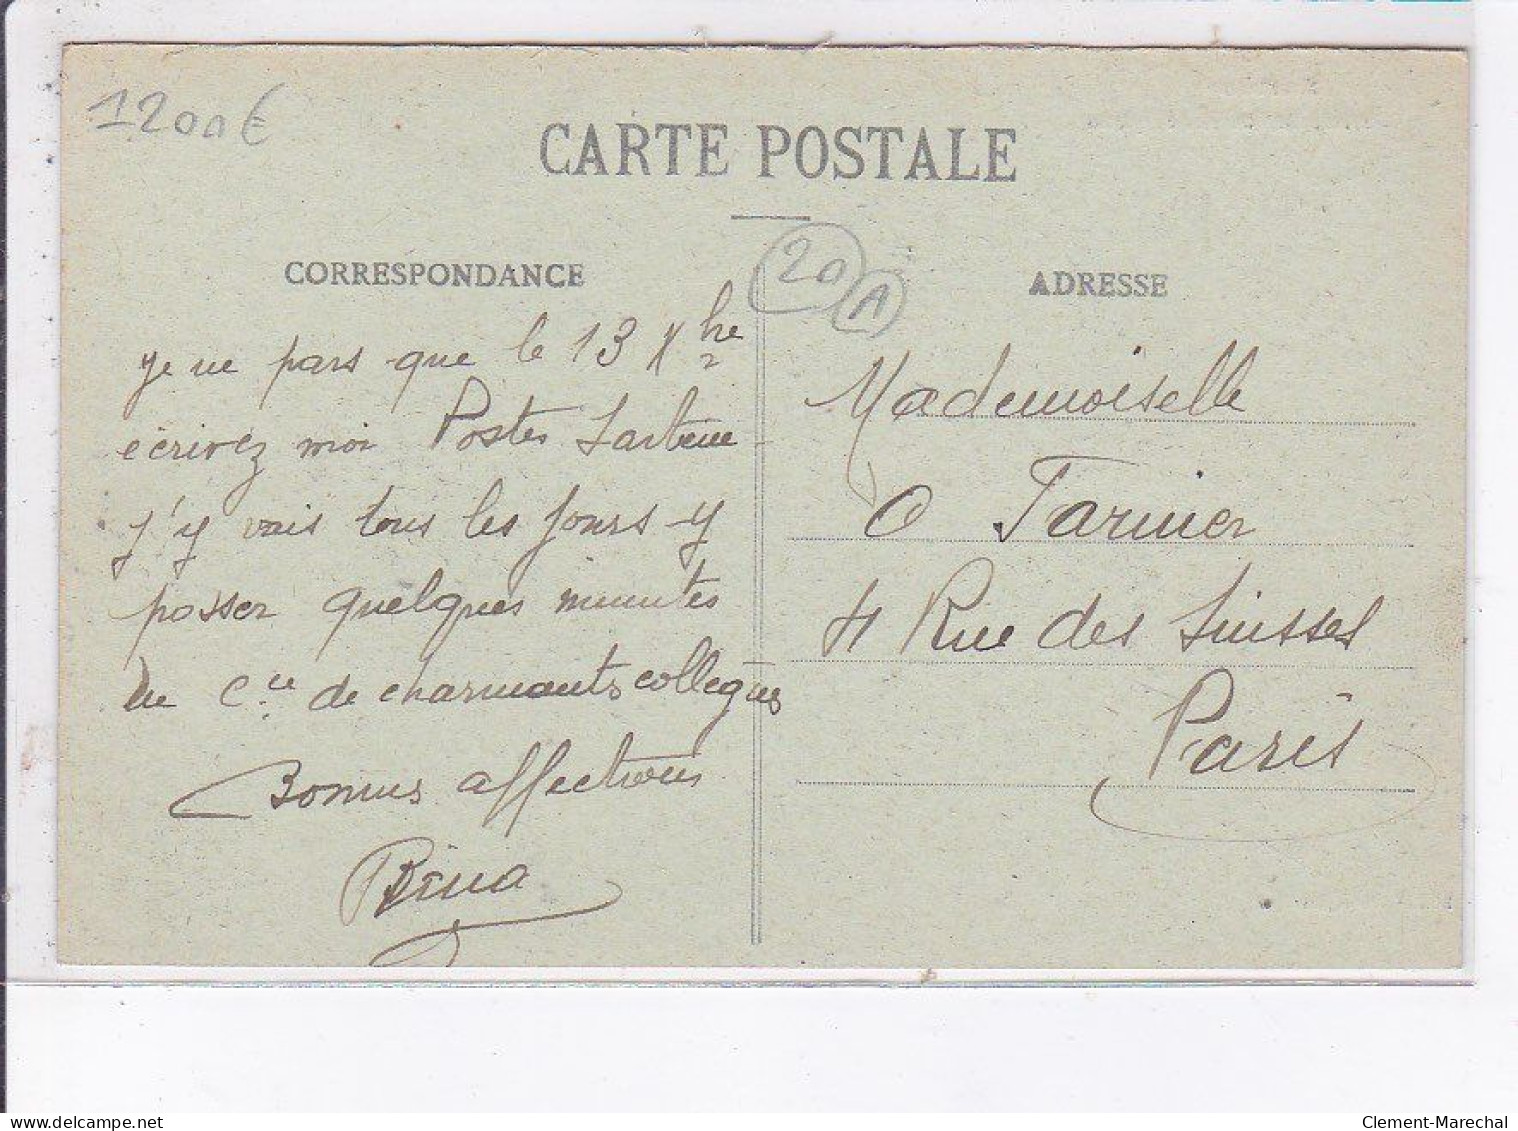 1200€
CARTE POSTALE
CORRESPONDANCE
20 A
ADRESSE
je ne pars que le 13 Xbre
écrivez moi Postes
j'y vais tous les jours y
passer quelques minutes
en Cie de charmants collègues
Bonnes affections
Mademoiselle
O Tarnier
4 Rue des Suisses
Paris
delcampe.net
Clement-Marechal